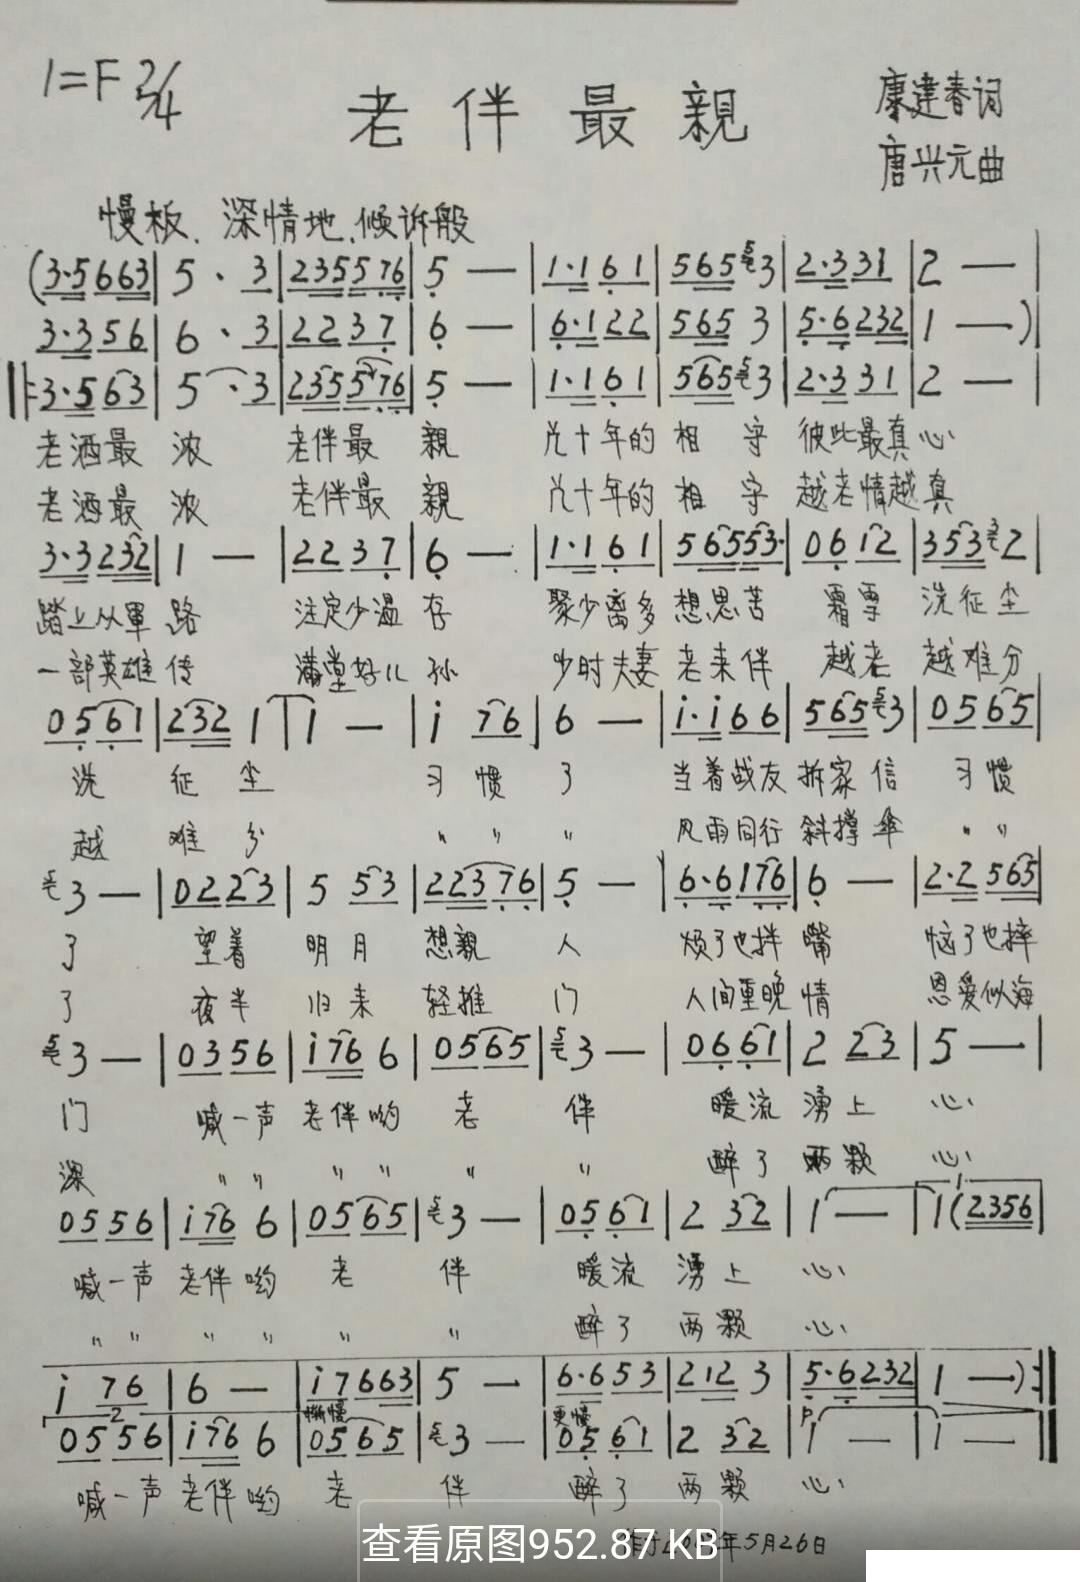 1=F 2/4
老伴最親
康建春词
唐兴元曲
慢板、深情地、倾诉般
(3·5 663 | 5 · 3 | 2355 576 | 5 — | 1·1 6 1 | 565 3 | 2·3 31 | 2 — |
3·3 56 | 6 · 3 | 22 37 | 6 — | 6·1 22 | 565 3 | 5·6 232 | 1 — ) |
3·5 63 | 5 · 3 | 235 576 | 5 — | 1·1 6 1 | 565 3 | 2·3 31 | 2 — |
老酒最 浓 老伴最 親 十年的 相 守 彼此最真心
老酒最 浓 老伴最 親 十年的 相 守 越老情越真
3·3 232 | 1 — | 22 37 | 6 — | 1·1 6 1 | 56553· | 06 12 | 353 2 |
踏上从軍 路 注定少温 存 聚少离多 想思苦 霜雪 洗征尘
一部英雄 传 满堂好儿 孙 少时夫妻 老来伴 越老 越难分
05 61 | 232 1 | 1 — | i 76 | 6 — | i·i 66 | 565 3 | 05 65 |
洗 征 尘 习 惯 了 当着战友 拆家 信 习 惯
越 难 分 〃 〃 〃 风雨同行 斜撑 伞 〃 〃
3 — | 02 23 | 5 53 | 22376 | 5 — | 6·6 176 | 6 — | 2·2 565 |
了 望着 明 月 想親 人 烦了也拌 嘴 恼了也摔
了 夜半 归来 轻推 门 人间重晚 情 恩爱似海
3 — | 03 56 | i76 6 | 05 65 | 3 — | 06 61 | 2 23 | 5 — |
门 喊一声 老伴哟 老 伴 暖流 湧上 心
深 〃 〃 〃 〃 〃 〃 醉了 两颗 心
05 56 | i76 6 | 05 65 | 3 — | 05 61 | 2 32 | 1 — | 1 (2356 |
喊一声 老伴哟 老 伴 暖流 湧上 心
〃 〃 〃 〃 〃 〃 醉了 两颗 心
i 76 | 6 — | i7663 | 5 — | 6·6 53 | 212 3 | 5·6 232 | 1 — ) :|
2
渐慢 更慢 p
05 56 | i76 6 | 05 65 | 3 — | 05 61 | 2 32 | 1 — | 1 — |
喊一声 老伴哟 老 伴 醉了 两颗 心
年5月26日
查看原图952.87 KB